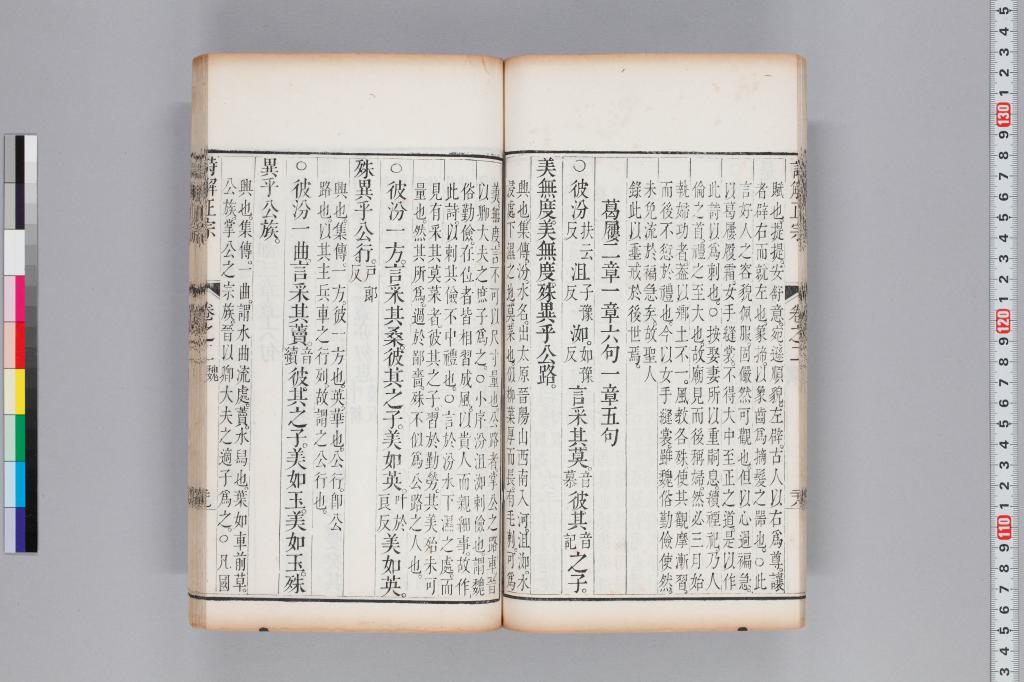 詩解正宗
卷之二
賦也。提提安舒意。宛遜順貌。左辟。古人以右爲尊。讓
者辟右而就左也。象揥以象齒爲摘髮之器也。○此
言好人之容貌佩服固儼然可觀也。但以心過褊急。
以葛屨履霜。女手縫裳。不得大中至正之道。是以作
此詩以刺也。○按娶妻所以重嗣息續禋祀。乃人
倫之首。禮之至大也。故廟見而後稱婦。然必三月始
執婦功者。蓋以鄕土不一。風教各殊。使其觀摩漸習。
而後不愆於禮也。今以女手縫裳。雖魏俗勤儉使然。
未免流於褊急矣。故聖人
錄此以垂戒於後世焉。
葛屨二章一章六句一章五句
○彼汾扶云反沮子豫反洳。如豫反言采其莫。音慕彼其音記之子。
美無度。美無度。殊異乎公路。
興也。集傳。汾水名。出太原晉陽山。西南入河。沮洳。水
浸處下濕之地。莫菜也。似柳葉厚而長。有毛刺。可爲
美無度。言不可以尺寸量也。公路者。掌公之路車。晉
以卿大夫之庶子爲之。○小序。汾沮洳。刺儉也。謂魏
俗勤儉。在位者皆相習成風。以貴人而親細事。故作
此詩以刺其儉不中禮也。○言於汾水下濕之處。而
見有采其莫菜者。彼其之子。習於勤勞。其美殆未可
量也。然其所爲。過於鄙嗇。殊不似爲公路之人也。
○彼汾一方。言采其桑。彼其之子。美如英。叶於良反美如英。
殊異乎公行。戸郎反
興也。集傳。一方。彼一方也。英。華也。公行。卽公
路也。以其主兵車之行列。故謂之公行也。
○彼汾一曲。言采其藚。音續彼其之子。美如玉。美如玉。殊
異乎公族。
興也。集傳。一曲。謂水曲流處。藚。水舄也。葉如車前草。
公族。掌公之宗族。晉以卿大夫之適子爲之。○凡國
詩解正宗
卷之二
魏